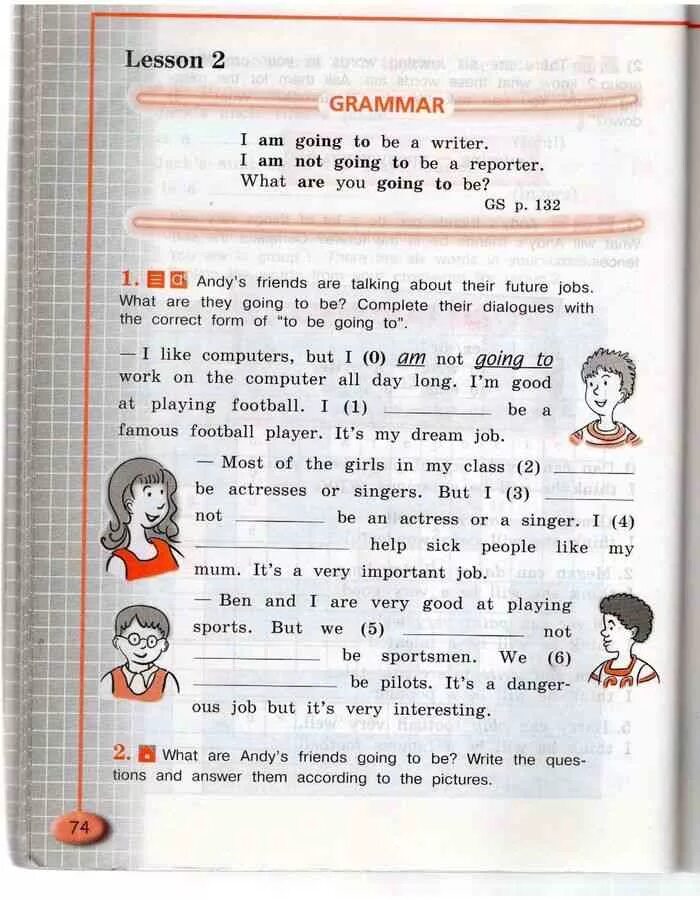 Lesson 2
GRAMMAR
I am going to be a writer.
I am not going to be a reporter.
What are you going to be?
GS p. 132
1. Andy's friends are talking about their future jobs.
What are they going to be? Complete their dialogues with
the correct form of "to be going to".
— I like computers, but I (0) am not going to
work on the computer all day long. I'm good
at playing football. I (1) __________ be a
famous football player. It's my dream job.
— Most of the girls in my class (2)
be actresses or singers. But I (3) ________
not ________ be an actress or a singer. I (4)
________________ help sick people like my
mum. It's a very important job.
— Ben and I are very good at playing
sports. But we (5) __________ not
____________ be sportsmen. We (6)
______________ be pilots. It's a danger-
ous job but it's very interesting.
2. What are Andy's friends going to be? Write the ques-
tions and answer them according to the pictures.
74